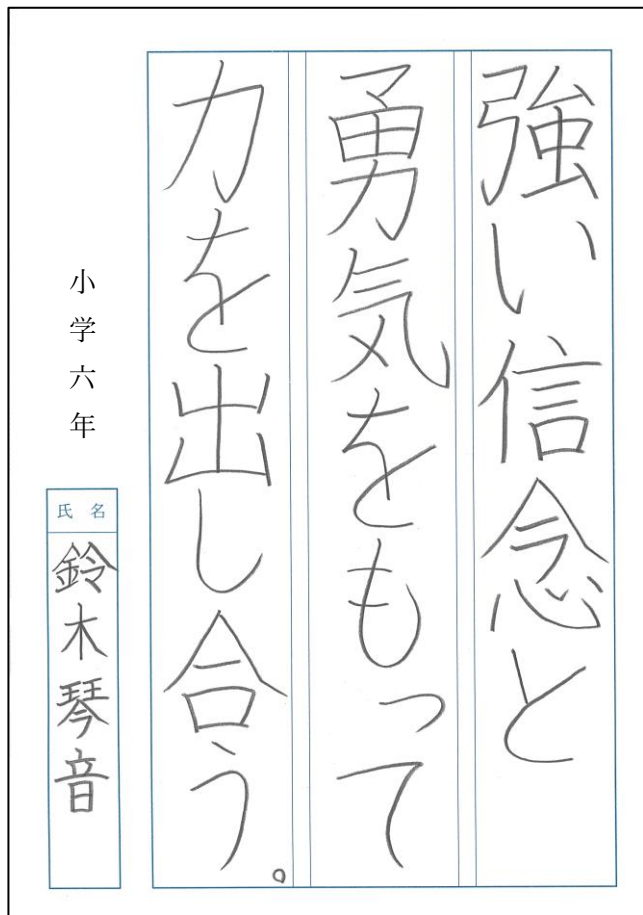 強い信念と
勇気をもって
力を出し合う。
小学六年
氏名
鈴木琴音